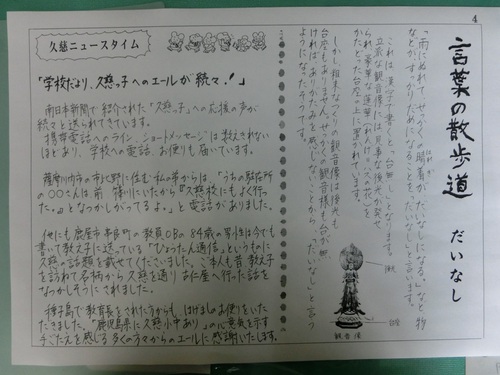 4
言葉の散歩道
だいなし
「雨にぬれて、せっかくの晴着がだいなしになる。」などと物
などがすっかりだめになることを、「だいなし」と言います。
立派な観音様には、見事な後光が発せ
られ、豪華な蓮華
かたどった台座の上に置かれています。
しかし、粗末なつくりの観音様は後光も
台座もありません。せっかくの観音様も台が無
ければありがたみを感じないことから、「だいなし」と言う
ようになったそうです。
後光
台座
観音像
久慈ニュースタイム
「学校だより、久慈っ子へのエールが続々!」
南日本新聞で紹介された「久慈っ子」への応援の声が
続々と送られてきています。
携帯電話へのライン、ショートメッセージは数えきれない
ほどあり、学校への電話、お便りも届いています。
薩摩川内市の市比野に住む私の夢からは、「うちの駐在所
の〇〇さんは前篠川にいたから『久慈校にもよく行っ
た。』となつかしがってるよ。」と電話がありました。
他にも鹿屋市串良町の教員OBの84歳の男性は今でも
書いて教え子に送っている「ひょうたん通信」というものに
久慈の話題を載せてくださいました。ご本人も昔教え子
を訪ねて名柄から久慈を通り古仁屋へ行った話を
なつかしそうにされました。
種子島で教育長をされた方からも はげましのお便りをいた
だきました。「鹿児島県に久慈小中あり」の心意気を示す
手ごたえを感じる多くの方々からのエールに感謝いたします。